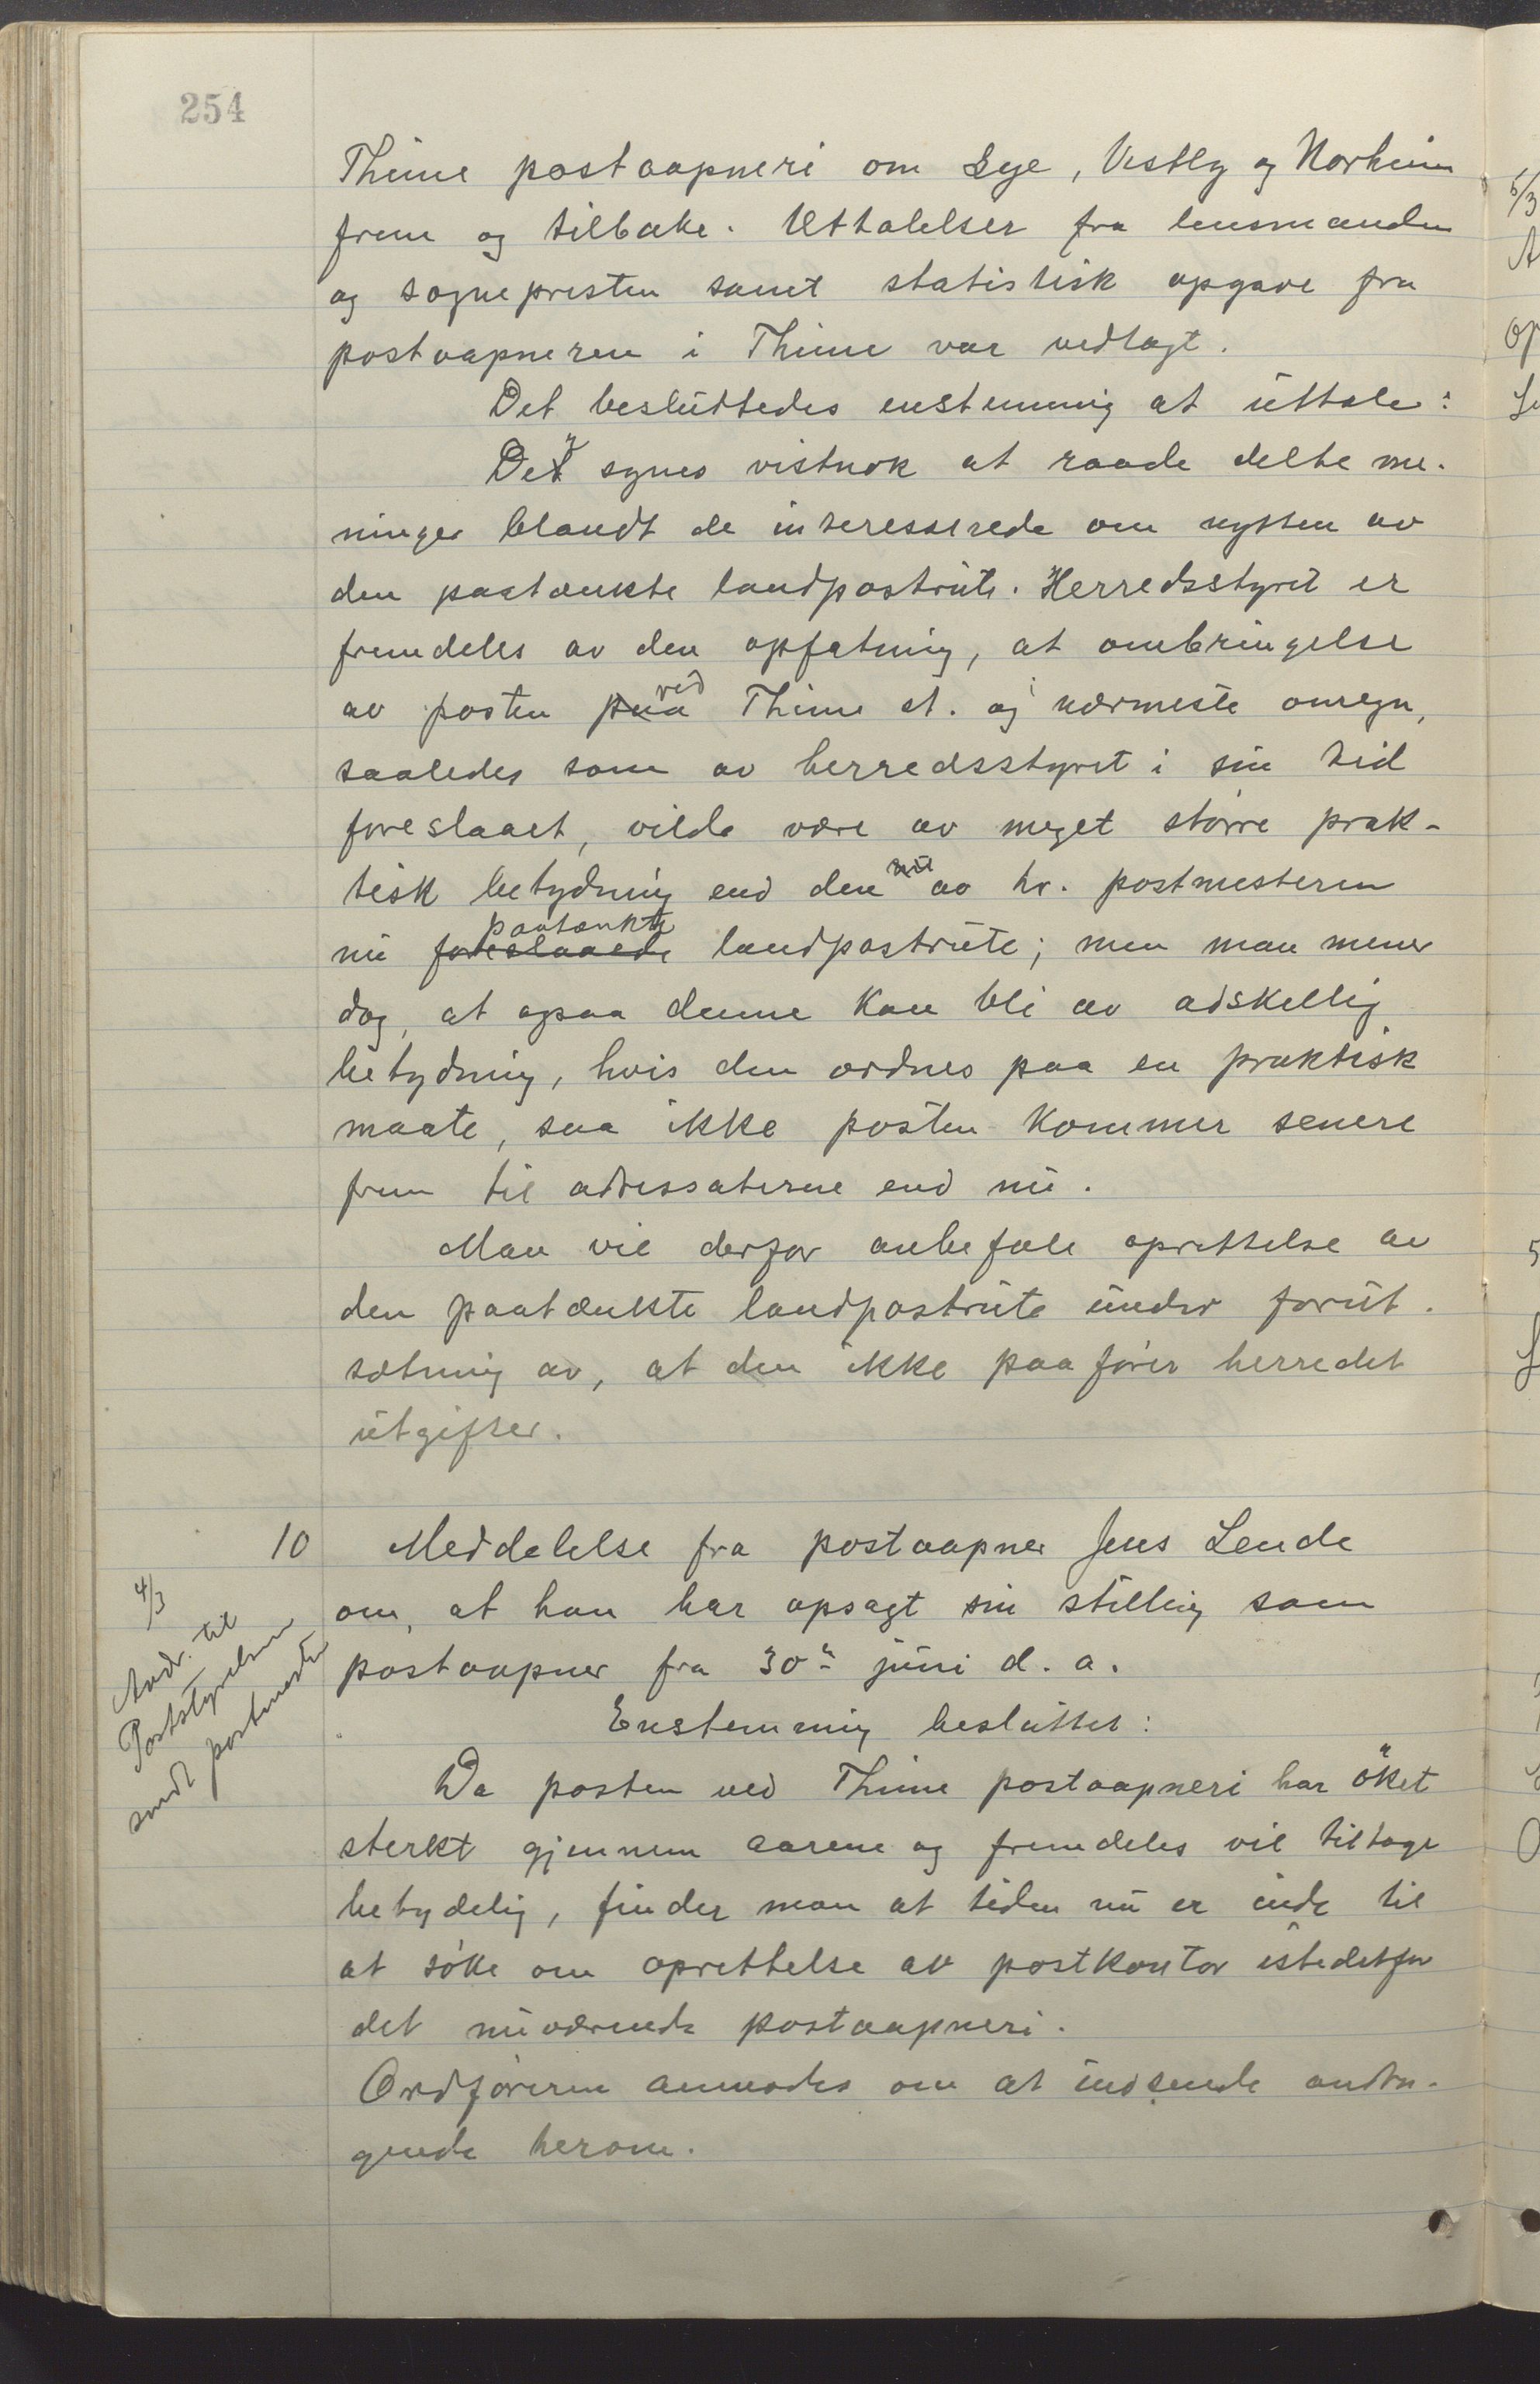 254
Thime postaapneri om Lye, Vestly og Norheim
frem og tilbake. Uttalelser fra lensmanden
og sognepresten samt statistisk opgave fra
postaapneren i Thime var vedlagt.
Det besluttedes enstemmig at uttale:
Der synes vistnok at raade delte me-
ninger blandt de interesserede om nytten av
den paatænkte landpostrute. Herredsstyret er
fremdeles av den opfatning, at ombringelse
av posten paa ved Thime st. og nærmeste omegn,
saaledes som av herredsstyret i sin tid
foreslaaet, vilde være av meget större prak-
tisk betydning end den nu av hr. postmesteren
nu foreslaaede paatænkte landpostrute; men man mener
dog, at ogsaa denne kan bli av adskellig
betydning, hvis den ordnes paa en praktisk
maate, saa ikke posten kommer senere
frem til adressaterne end nu.
Man vil derfor anbefale oprettelse av
den paatænkte landpostrute under forut-
sætning av, at den ikke paaförer herredet
utgifter.
10 Meddelelse fra postaapner Jens Lende
om, at han har opsagt sin stilling som
postaapner fra 30te juni d. a.
Enstemmig besluttet:
Da posten ved Thime postaapneri har öket
sterkt gjennem aarene og fremdeles vil tiltage
betydelig, finder man at tiden nu er inde til
at söke om oprettelse av postkontor istedetfor
det nuværende postaapneri.
Ordföreren anmodes om at indsende andra-
gende herom.
4/3
Andr. til
Poststyrelsen
sendt postmesteren